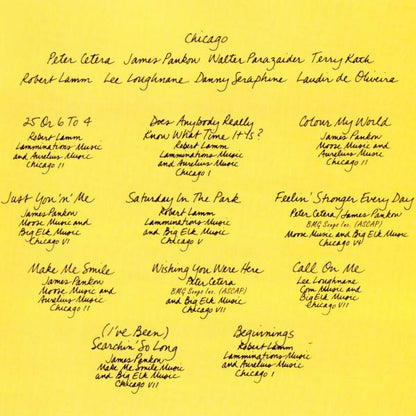 Chicago
Peter Cetera James Pankow Walter Parazaider Terry Kath
Robert Lamm Lee Loughnane Danny Seraphine Laudir de Oliveira
25 Or 6 To 4
Robert Lamm
Lamminations Music
and Aurelius Music
Chicago II
Does Anybody Really
Know What Time It Is?
Robert Lamm
Lamminations Music
and Aurelius Music
Chicago I
Colour My World
James Pankow
Moose Music and
Aurelius Music
Chicago II
Just You 'n' Me
James Pankow
Moose Music and
Big Elk Music
Chicago VI
Saturday In The Park
Robert Lamm
Lamminations Music
and Big Elk Music
Chicago V
Feelin' Stronger Every Day
Peter Cetera/James Pankow
BMG Songs Inc. (ASCAP)
Moose Music and Big Elk Music
Chicago VI
Make Me Smile
James Pankow
Moose Music and
Aurelius Music
Chicago II
Wishing You Were Here
Peter Cetera
BMG Songs Inc. (ASCAP)
and Big Elk Music
Chicago VII
Call On Me
Lee Loughnane
Com Music and
Big Elk Music
Chicago VII
(I've Been)
Searchin' So Long
James Pankow
Make Me Smile Music
and Big Elk Music
Chicago VII
Beginnings
Robert Lamm
Lamminations Music
and Aurelius Music
Chicago I